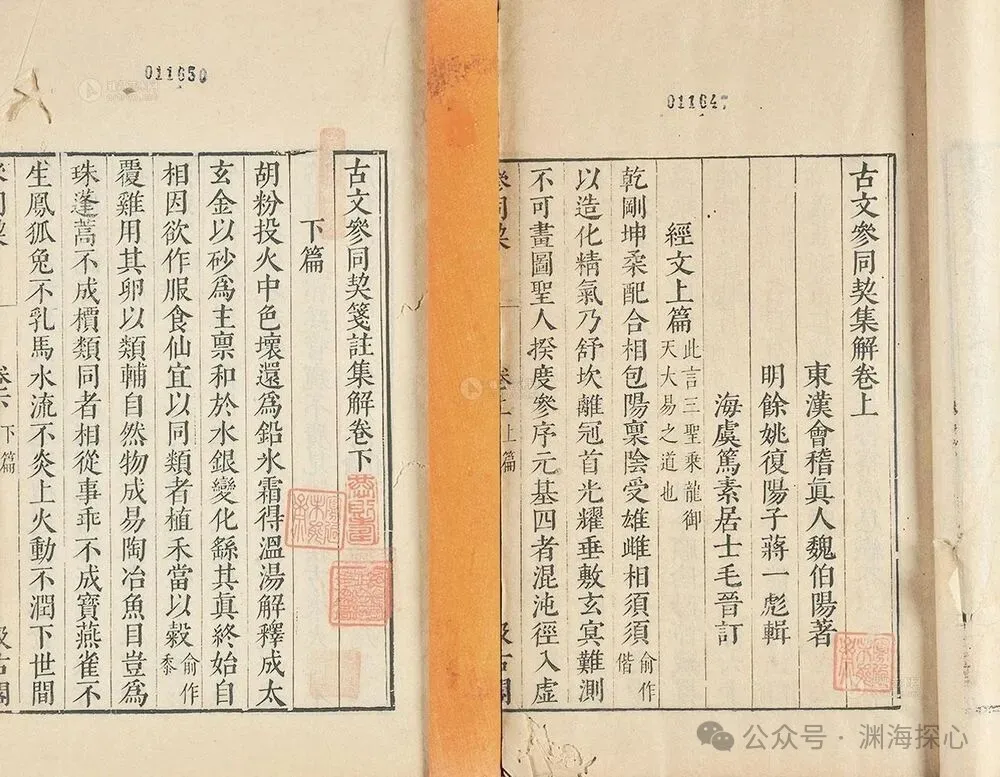 011647
古文參同契集解卷上
東漢會稽眞人魏伯陽著
明餘姚復陽子蔣一彪輯
海虞篤素居士毛晉訂
經文上篇 此言三聖乘龍御
天大易之道也
乾剛坤柔配合相包陽稟陰受雄雌相須須 俞作
偕
以造化精氣乃舒坎離冠首光耀垂敷玄冥難測
不可畫圖聖人揆度參序元基四者混沌徑入虛
上篇
011650
古文參同契箋註集解卷下
下篇
胡粉投火中色壞還爲鉛氷霜得溫湯解釋成太
玄金以砂爲主稟和於水銀變化繇其眞終始自
相因欲作服食仙宜以同類者植禾當以穀 俞作
黍
覆雞用其卵以類輔自然物成易陶冶魚目豈爲
珠蓬蒿不成檟類同者相從事乖不成寶燕雀不
生鳳狐兔不乳馬水流不炎上火動不潤下世間
下篇
公众号 · 渊海探心